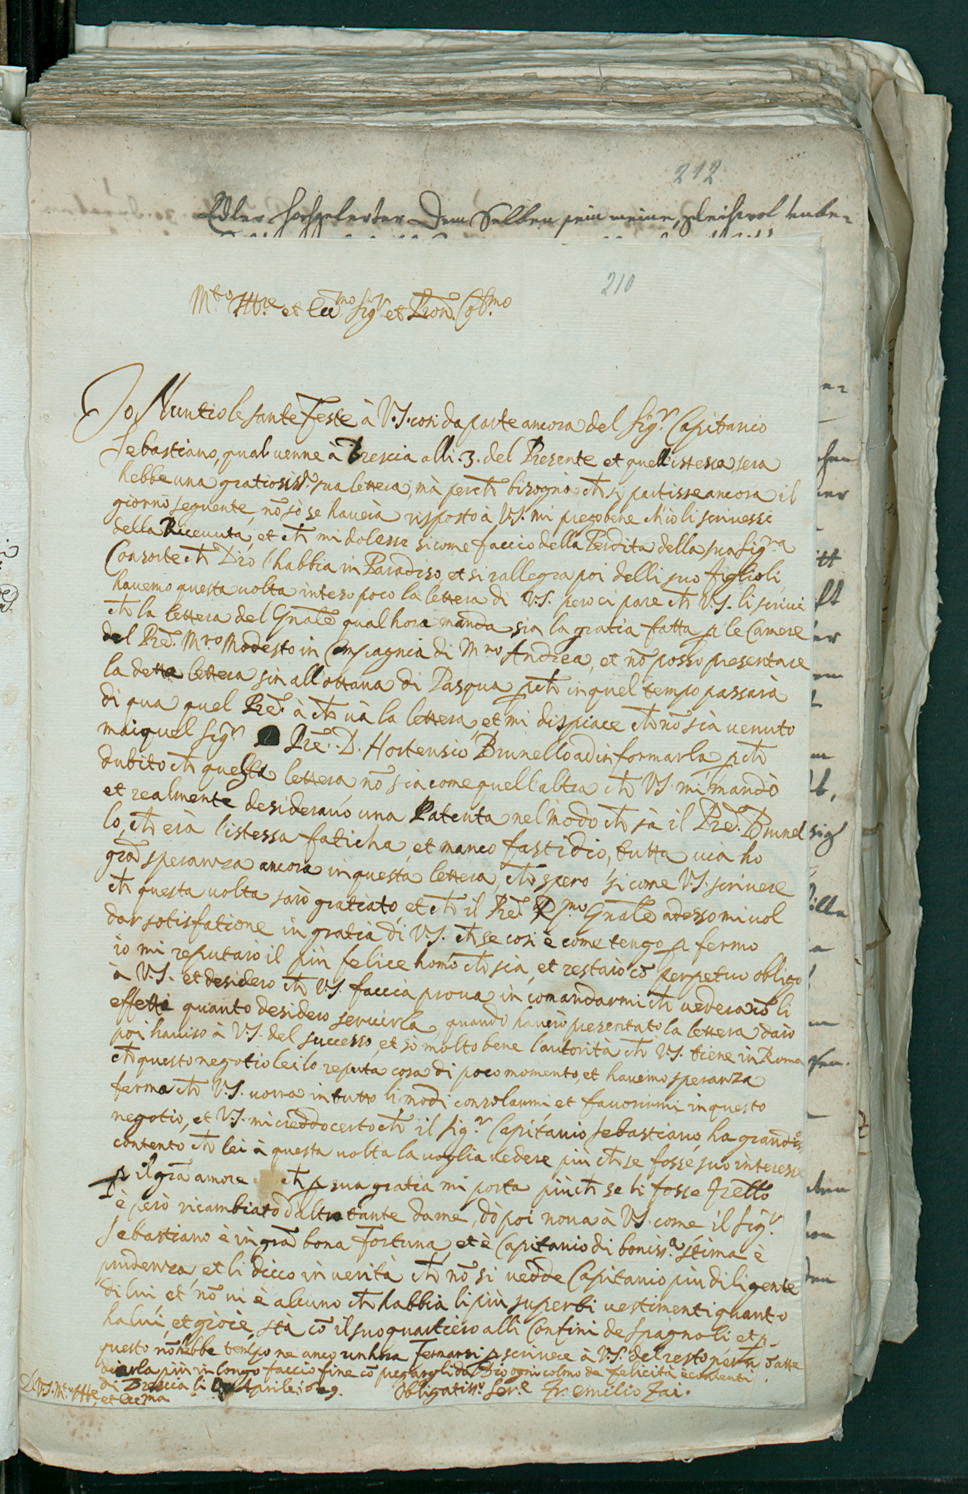 212
Edler Hochgelerter Dem Selben sein meine, gleichwol unbe-
210
M.to Ill.re et Ecc.mo Sig.r et Pron. Col.mo
Io Nuntio le sante Feste à V.S. cosi da parte ancora del Sig.r Capitanio
Sebastiano, qual venne à Brescia alli .3. del Presente et quell'istessa sera
hebbe una gratiosiss.a sua lettera, mà perch bisogno ch si partisse ancora il
giorno seguente, nõ sò se haverà risposto à V.S. mi prego bene ch'io li scrivessi
della Ricevuta, et ch mi dolesse si come faccio della Perdita della sua Sig.ra
Consorte ch Dio l'habbia in Paradiso, et si rallegra poi delli suo figlioli,
havemo questa volta inteso poco la lettera di V.S. pero ci pare ch V.S. li scrive
ch la lettera del Gnãle qual hora manda sia la gratia fatta p le Camere
del Pre. M.ro Modesto in Compagnia di M.ro Andrea, et nõ posso presentare
la detta lettera sin all'ottava di Pasqua pch in quel tempo passarà
di qua quel Pre. à ch và la lettera et mi dispiace ch nõ sia venuto
mai quel Sig.r Pre. D. Hortensio Brunello ad informarla pch
dubito ch questa lettera nõ sia come quell'altra ch V.S. mi mandò
et realmente desideravo una Patenta nel modo ch sà il Pre. Brunel
lo, ch era l'istessa faticha, et manco fastidio, tutta via ho
grã speranza ancora in questa lettera, ch spero si come V.S. scrivere
ch questa volta sarò gratiato, et ch il Pre. R.mo Gnãle adesso mi vol
dar sotisfatione in gratia di V.S. ch se cosi è come tengo p fermo
io mi reputarò il più felice homo ch sia, et restarò cõ perpetuo obligo
à V.S. et desidero ch V.S. faccia prova in comandarmi ch vederà cõ li
effetti quanto desidero servirla, quando haverò presentato la lettera darò
poi haviso à V.S. del successo, et sò molto bene l'autorità ch V.S. tiene in Roma
ch questo negotio lei lo reputa cosa di poco momento, et havemo speranza
ferma ch V.S. vorrà in tutto li modi consolarmi et favorirmi in questo
negotio, et V.S. mi creddo certo ch il Sig.r Capitanio Sebastiano, ha grandis.
contento ch lei à questa volta la voglia vedere più ch se fosse suo interesse
p il grã amore ch p sua gratia mi porta più ch se li fosse Frello
è però ricambiato d'altro tante da me, dò poi nova à V.S. come il Sig.r
Sebastiano è in grã bona Fortuna, et è Capitanio di boniss.a stima è
prudenza, et li dicco in verita ch nõ si vedde Capitanio più diligente
di lui et nõ vi è alcuno ch habbia li più superbi vestimenti quanto
ha lui, et gioie, sta cõ il suo quartiero alli Confini de Spagnoli et p
questo nõ hebbe tempo ne anco un hora fermarsi p scrivere à V.S. del resto
più in longo faccio fine cõ pregargli da Dio ogni colmo de felicità e contenti
di Brescia li Aprile
D. V.S. M.to Ill.re
et Ecc.ma
Obligatiss.o Ser.e Fr. Emilio Zai.